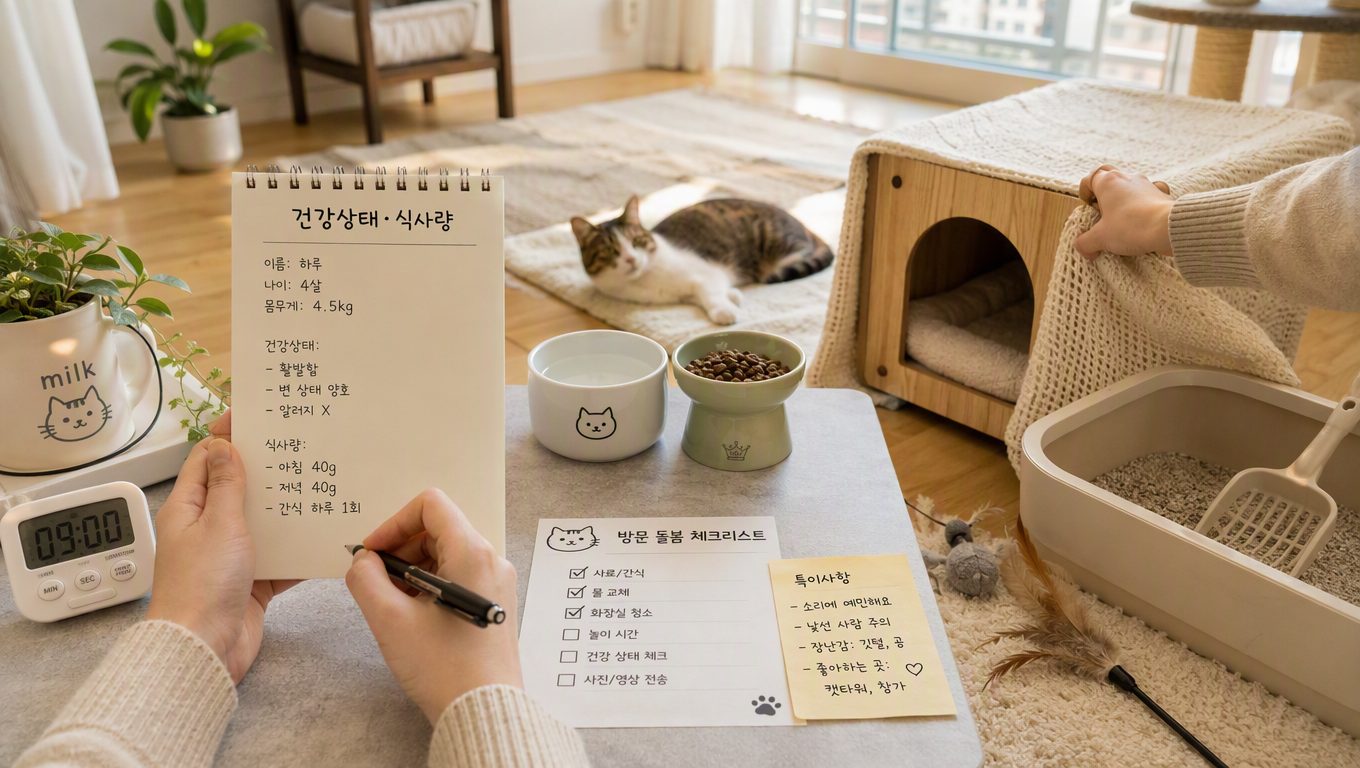 milk
09:00
MIN
SEC
건강상태·식사량
이름: 하루
나이: 4살
몸무게: 4.5kg
건강상태:
- 활발함
- 변 상태 양호
- 알러지 X
식사량:
- 아침 40g
- 저녁 40g
- 간식 하루 1회
방문 돌봄 체크리스트
☑ 사료/간식
☑ 물 교체
☑ 화장실 청소
☐ 놀이 시간
☐ 건강 상태 체크
☐ 사진/영상 전송
특이사항
- 소리에 예민해요
- 낯선 사람 주의
- 장난감: 깃털, 공
- 좋아하는 곳: ♡
캣타워, 창가